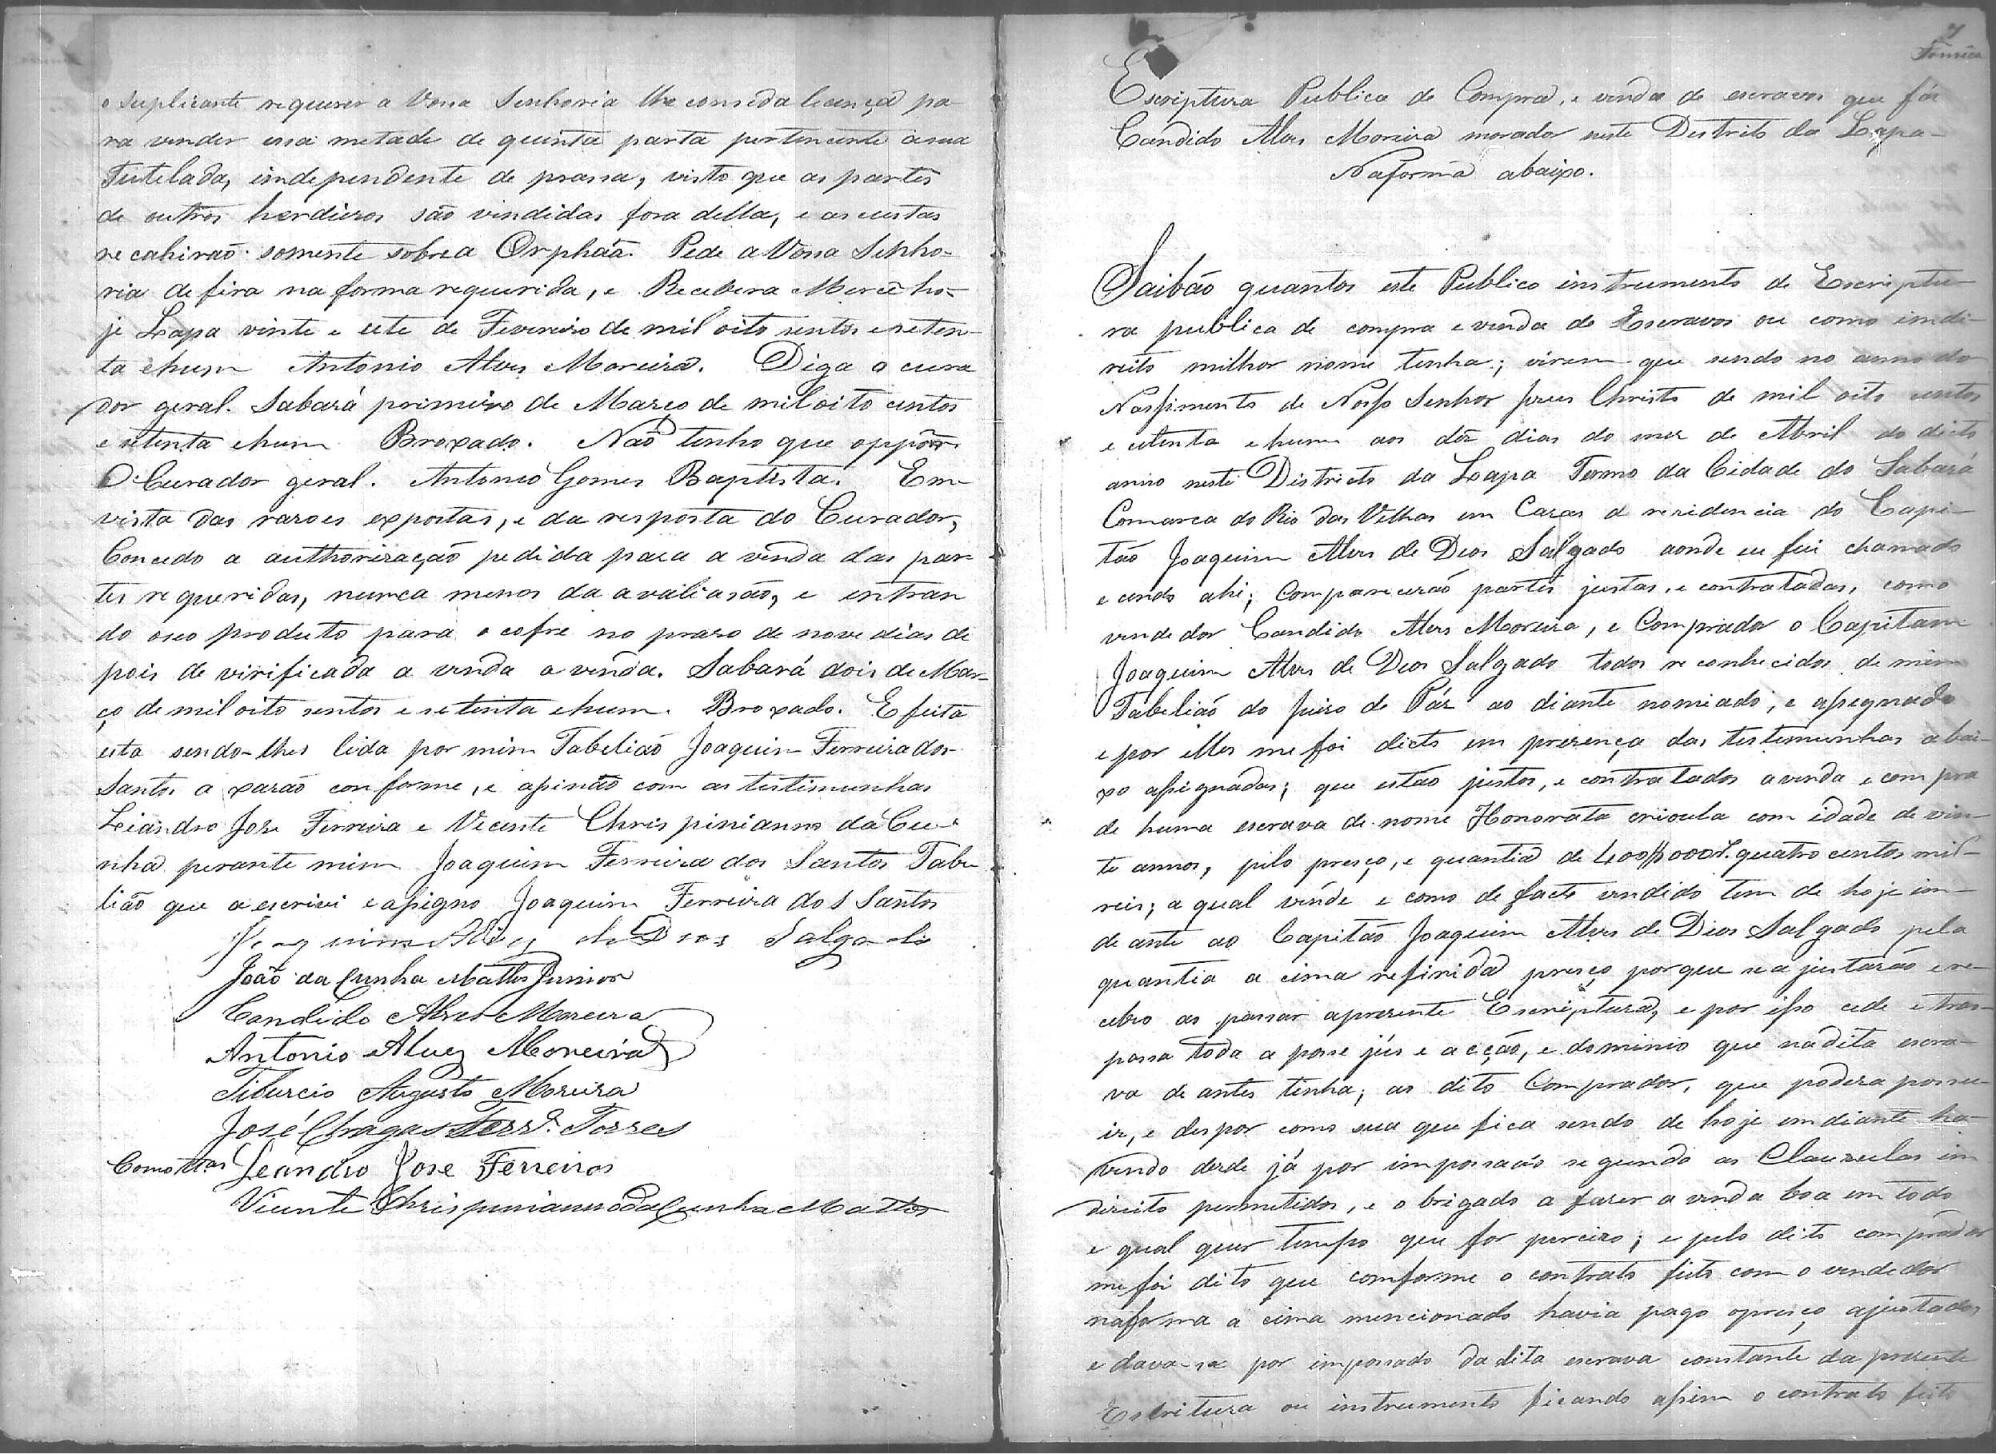 o Suplicante requerer a Vossa Senhoria lhe conseda licença pa
ra vender essa metade de quinta parta pertencente a sua
Tutelada, independente de prassa, visto que as partes
de outros herdieros são vendidas fora della, e as custas
recahiraõ somente sobre a Orphãa. Pede a Vossa Senho-
ria defira na forma requerida, e Recebera Merce ho-
je Lapa vinte e sete de Fevereiro de mil oito sentos e seten-
ta ehum Antonio Alves Moreira. Diga o cura
dor geral. Sabará primeiro de Março de mil oito centos
e setenta ehum Broxado. Naõ tenho que oppôr.
O Curador geral. Antonio Gomes Baptista. Em
vista das razoes expostas, e da resposta do Curador,
Concedo a authorisaçaõ pedida para a venda das par
tes requeridas, nunca menos da avaliasaõ, e entran
do o seo produto para o cofre no praso de nove dias de
pois de virificada a venda a venda. Sabará dois de Mar-
ço de mil oito sentos e setenta ehum. Broxado. E feita
esta sendo-lhes lida por mim Tabeliaõ Joaquim Ferreira dos
Santos a xaraõ conforme, e asinaõ com as testimunhas
Leandro Jose Ferreira e Vicente Chrispinianno da Cu-
nha perante mim Joaquim Ferreira dos Santos Tabe
lião que a escrivi e assigno Joaquim Ferreira dos Santos
Joaquim Alves de Deos Salgado
João da Cunha Mattos Junior
Candido Alves Moreira
Antonio Alvez Moreira
Tiburcio Augusto Moreira
José Chagas Ferrª Torres
Como ttas Leandro Jose Ferreira
Vicente Chrispinianno da Cunha Mattos
7
Escriptura Publica de Compra, e venda de escravos que fás
Candido Alves Moreira morador neste Destrito da Lapa-
Na forma abaixo.
Saibão quantos este Publico instrumento de Escriptu-
ra publica de compra e venda de Escravos ou como indi-
reito milhor nome tenha; virem que sendo no anno do
Nassimento de Nosso Senhor Jesus Christo de mil oito centos
e setenta e hum aos dês dias do mes de Abril do dicto
anno neste Districto da Lapa Termo da Cidade do Sabará
Comarca do Rio das Velhas em Cazas d residencia do Capi-
tão Joaquim Alves de Deos Salgado aonde eu fui chamado
e cendo ahi; Comparecerão partes justas, e contratadas, como
vendedor Candido Alves Moreira, e Comprador o Capitam
Joaquim Alves de Deos Salgado todos reconhecidos de mim
Tabeliaõ do Juiso de Páz ao diante nomiado, e assegnado
e por elles me foi dicto em presença das testemunhas abai-
xo assignadas; que estão justos, e contratados a venda e compra
de huma escrava de nome Honorata crioula com idade de vin-
te annos, pilo presço, e quantia de 400$000rs. quatro centos mil-
reis; a qual vende e como de facto vendido tem de hoje im-
de ante ao Capitão Joaquim Alves de Deos Salgado pela
quantia a cima refirida presço porque se ajustarão e re-
cebeo ao passar apresente Escriptura, e por isso cede e tras-
passa toda a posse jús e acção, e dominio que na dita escra-
va de antes tinha; ao dito Comprador, que podera possu-
ir, e despor como sua que fica sendo de hoje em diante ha-
vendo desde já por impossado segundo as Clauzulas im
direito permetidos, e obrigado a fazer a venda boa em todo
e qual quer tempo que for perciso; e pelo dito comprador
me foi dito que comforme o contrato feito com o vendedor
naforma a cima mencionado havia pago o presço ajustado,
e dava-se por impossado da dita escrava constante da presente
Escritura ou instrumento ficando assim o contrato feito